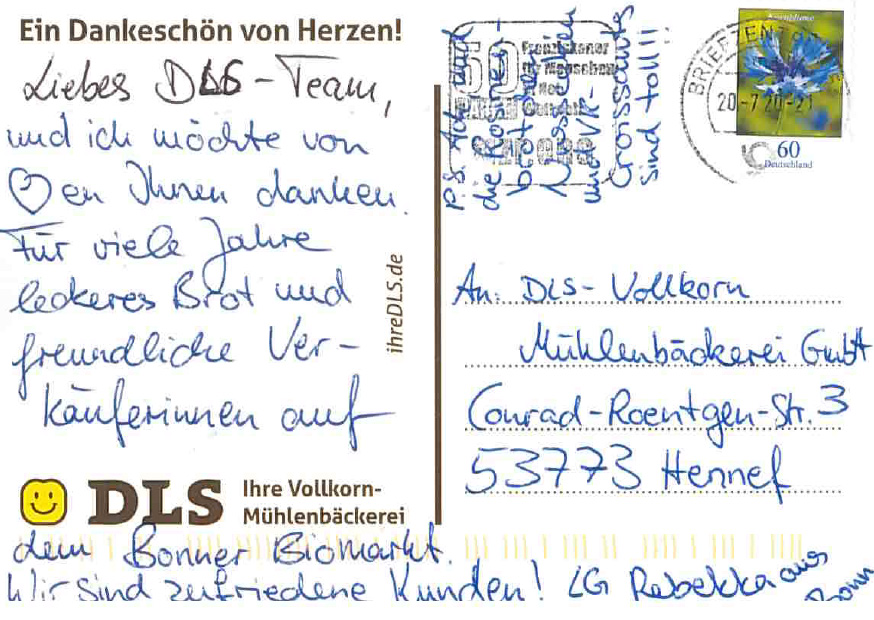 Ein Dankeschön von Herzen!
Liebes DLS-Team,
und ich möchte von
♡en Ihnen danken.
Für viele Jahre
leckeres Brot und
freundliche Ver-
käuferinnen auf
dem Bonner Biomarkt.
Wir sind zufriedene Kunden! LG Rebekka aus
Bonn
DLS
Ihre Vollkorn-
Mühlenbäckerei
ihreDLS.de
P.S. Ach und
die Rosinen-
brötchen
und VK-
Croissants
sind toll!!
60
Franziskaner
für Menschen
in Not
BRIEFZENTRUM
20-7 20-21
60
Deutschland
An: DLS-Vollkorn
Mühlenbäckerei GmbH
Conrad-Roentgen-Str. 3
53773 Hennef